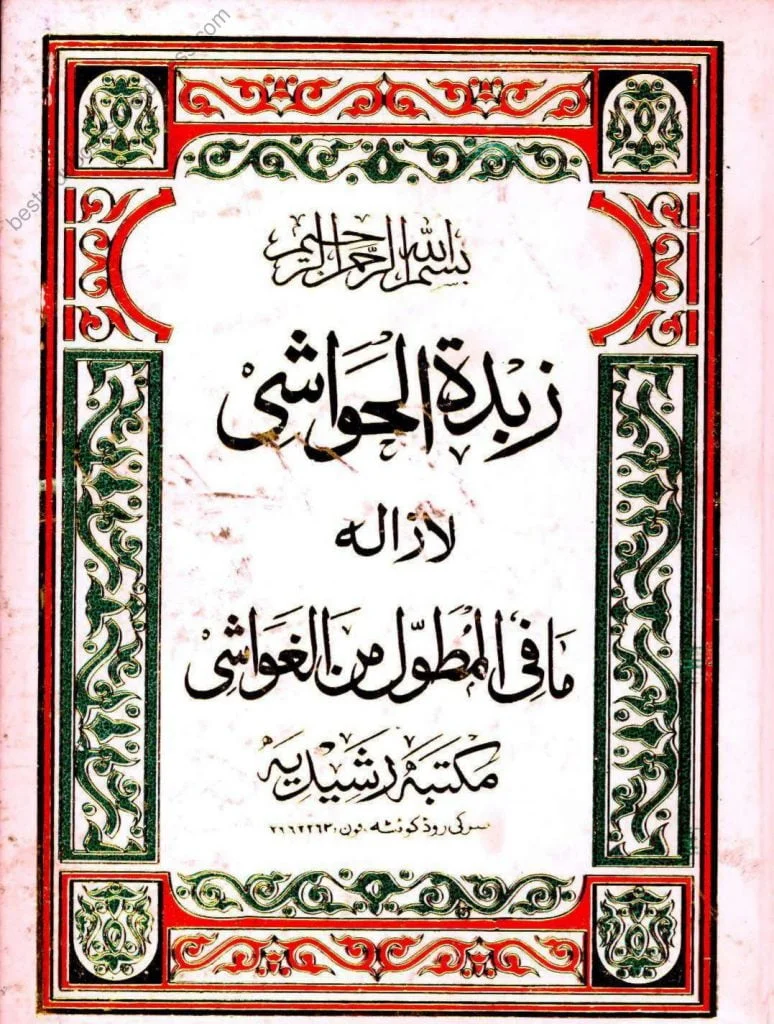 بسم الله الرحمن الرحيم
زبدة الحواشی
لازاله
ما فی المطول من الغواشی
مکتبه رشیدیه
سرکی روڈ کوئٹہ. فون: